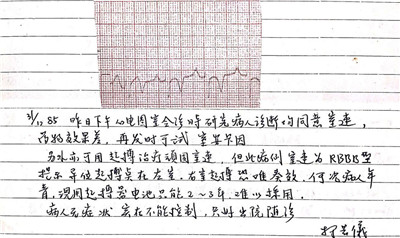 3/12 85 昨日下午心电图室会诊时研究病人诊断均同意室速,
药物效果差, 再发时可试室安卡因
另外亦可用起搏治疗顽固室速, 但此病例室速为RBBB型
提示异位起搏点在左室, 右室起搏恐难奏效, 何况病人年
青, 现用起搏器电池只能2~3年 难以採用.
病人无症状 实在不能控制, 只好出院随诊